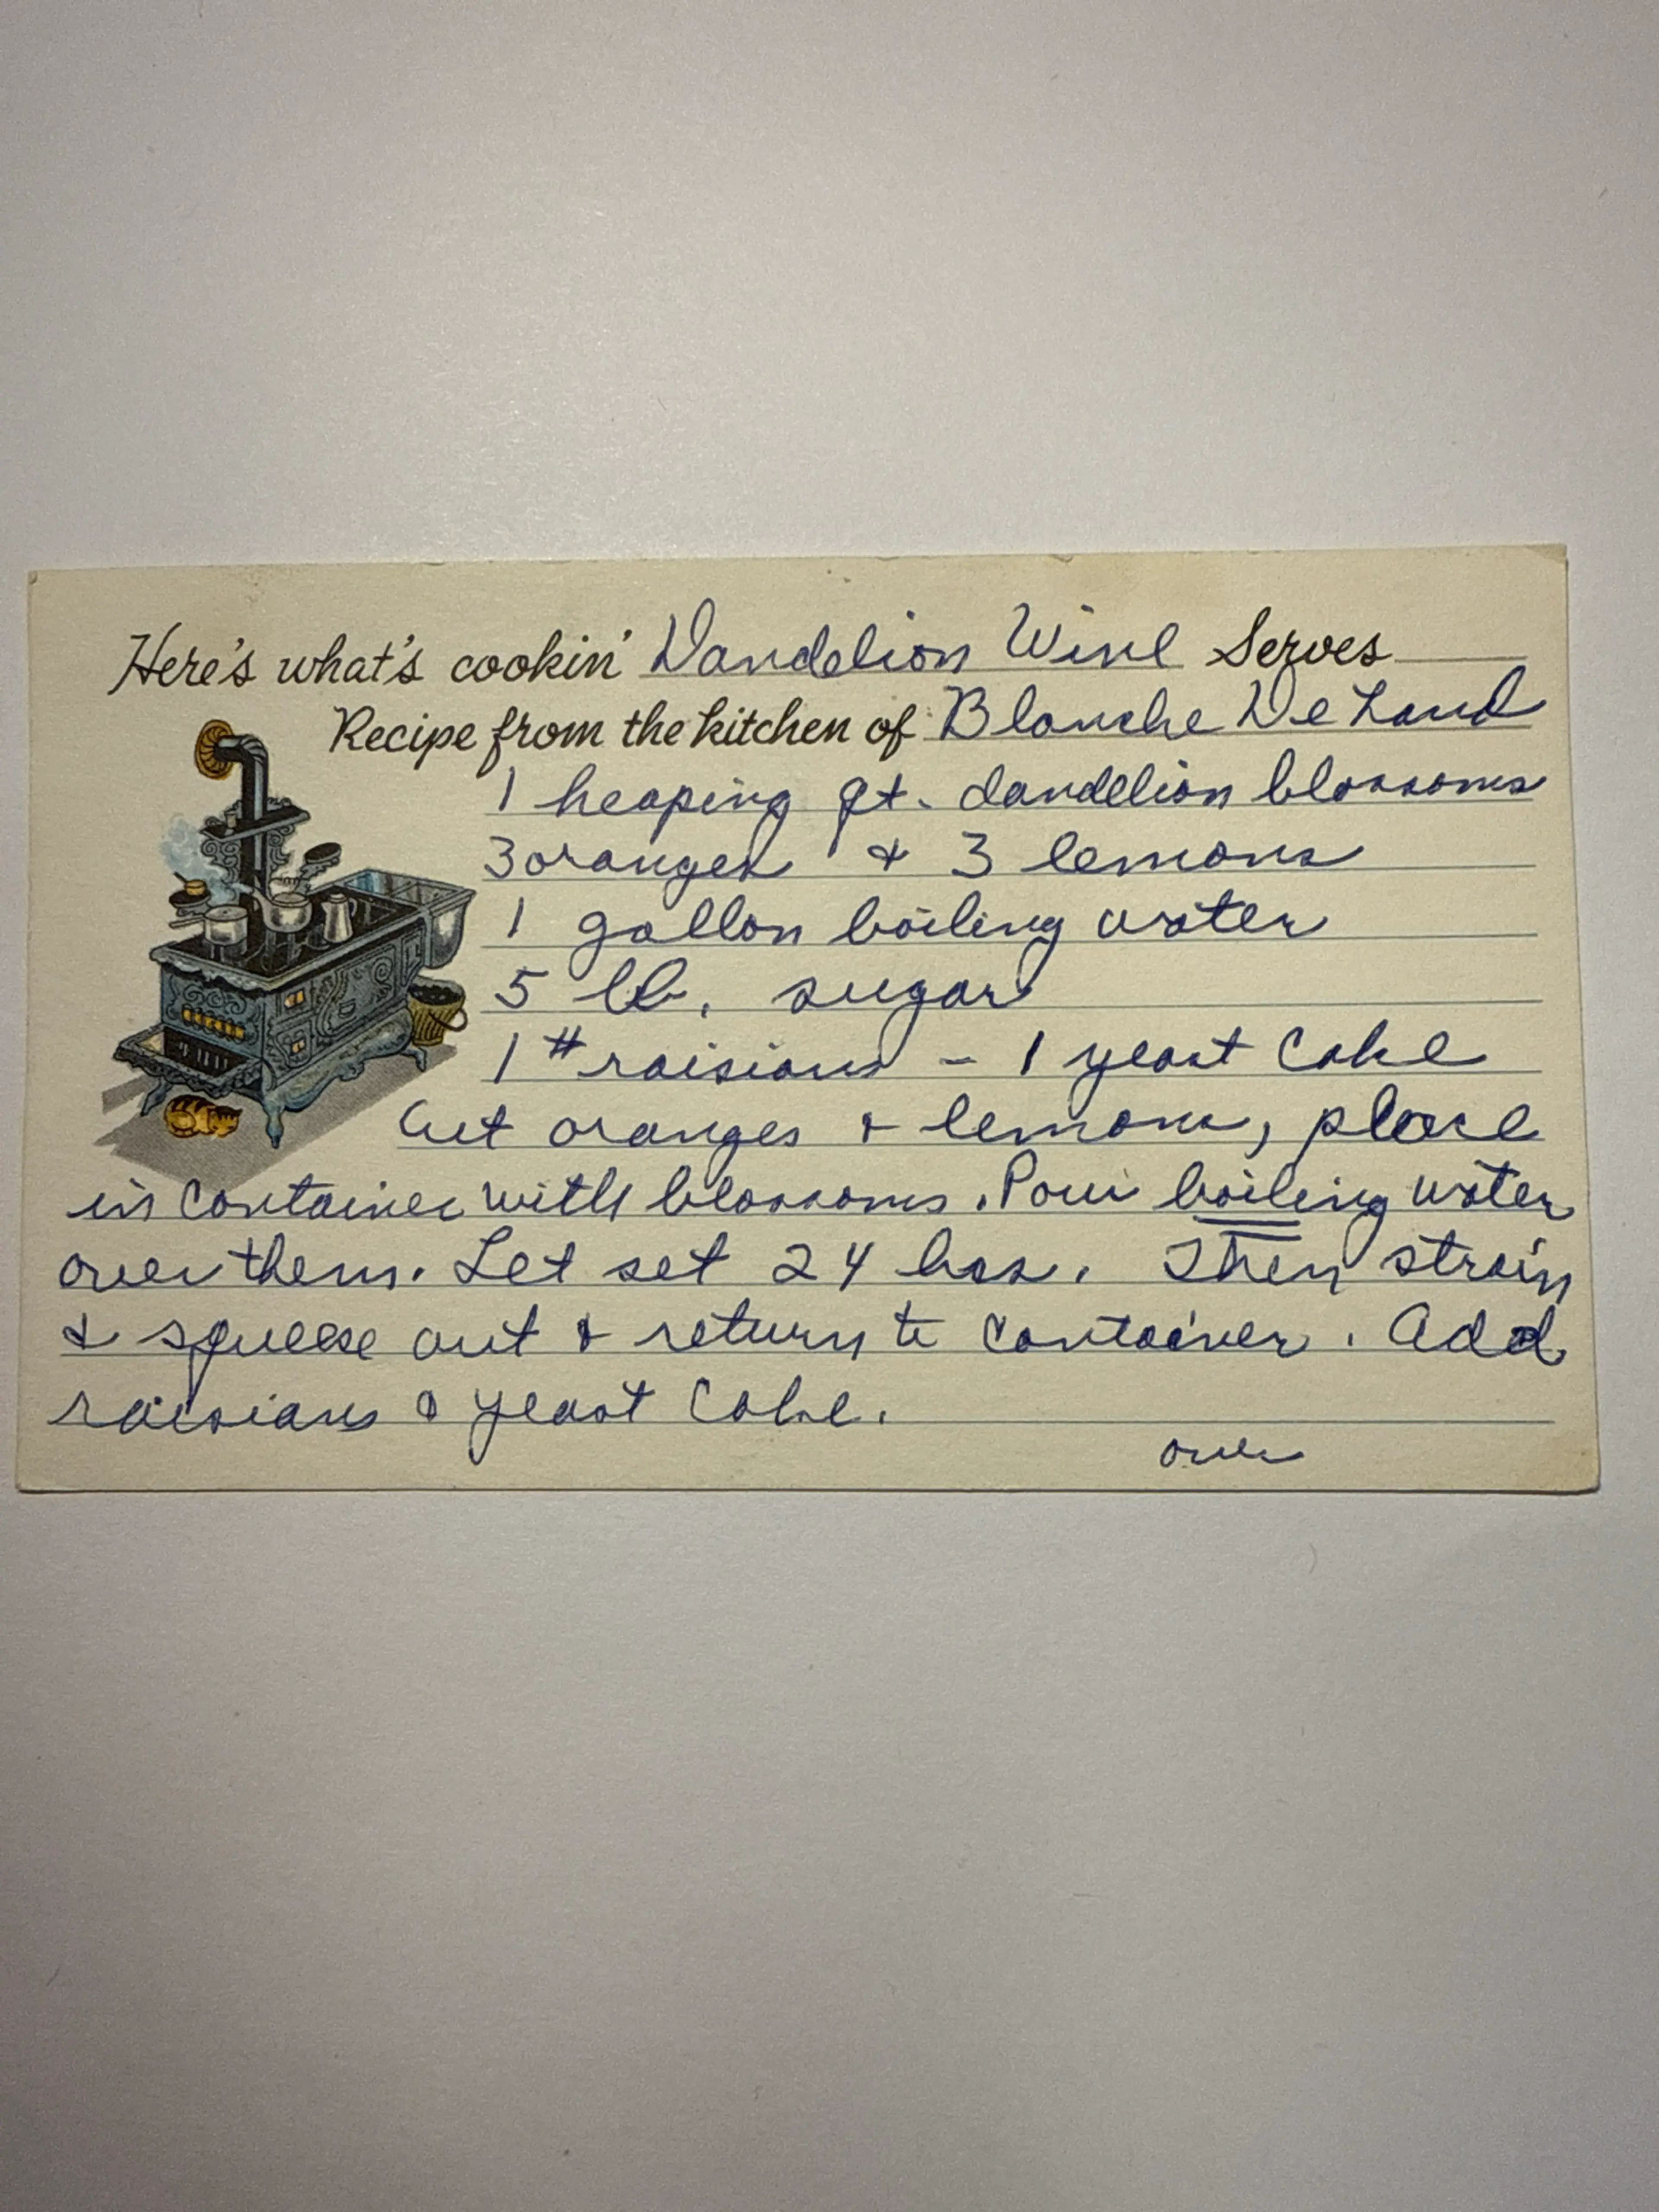 Here's what's cookin' Dandelion Wine Serves
Recipe from the kitchen of Blanche De Land
1 heaping qt. dandelion blossoms
3 oranges & 3 lemons
1 gallon boiling water
5 lb. sugar
1 # raisians - 1 yeast cake
Cut oranges & lemons, place
in container with blossoms. Pour boiling water
over them. Let set 24 hrs. Then strain
& squeese out & return to container. Add
raisians & yeast cake.
over